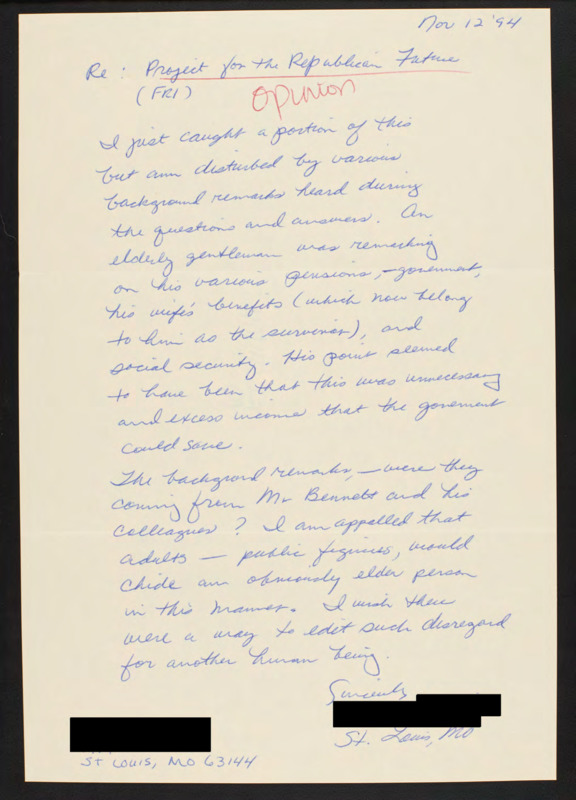 Nov 12 '94
Re: Project for the Republican Future
(FRI)
Opinion
I just caught a portion of this
but am disturbed by various
background remarks heard during
the questions and answers. An
elderly gentleman was remarking
on his various pensions, – goverment,
his wife's benefits (which now belong
to him as the survivor), and
social security. His point seemed
to have been that this was unnecessary
and excess income that the goverment
could save.
The background remarks, – were they
coming from Mr Bennett and his
colleagues? I am appalled that
adults – public figures, would
chide an obviously elder person
in this manner. I wish there
were a way to edit such disregard
for another human being.
Sincerely
St. Louis, MO
ST LOUIS, MO 63144